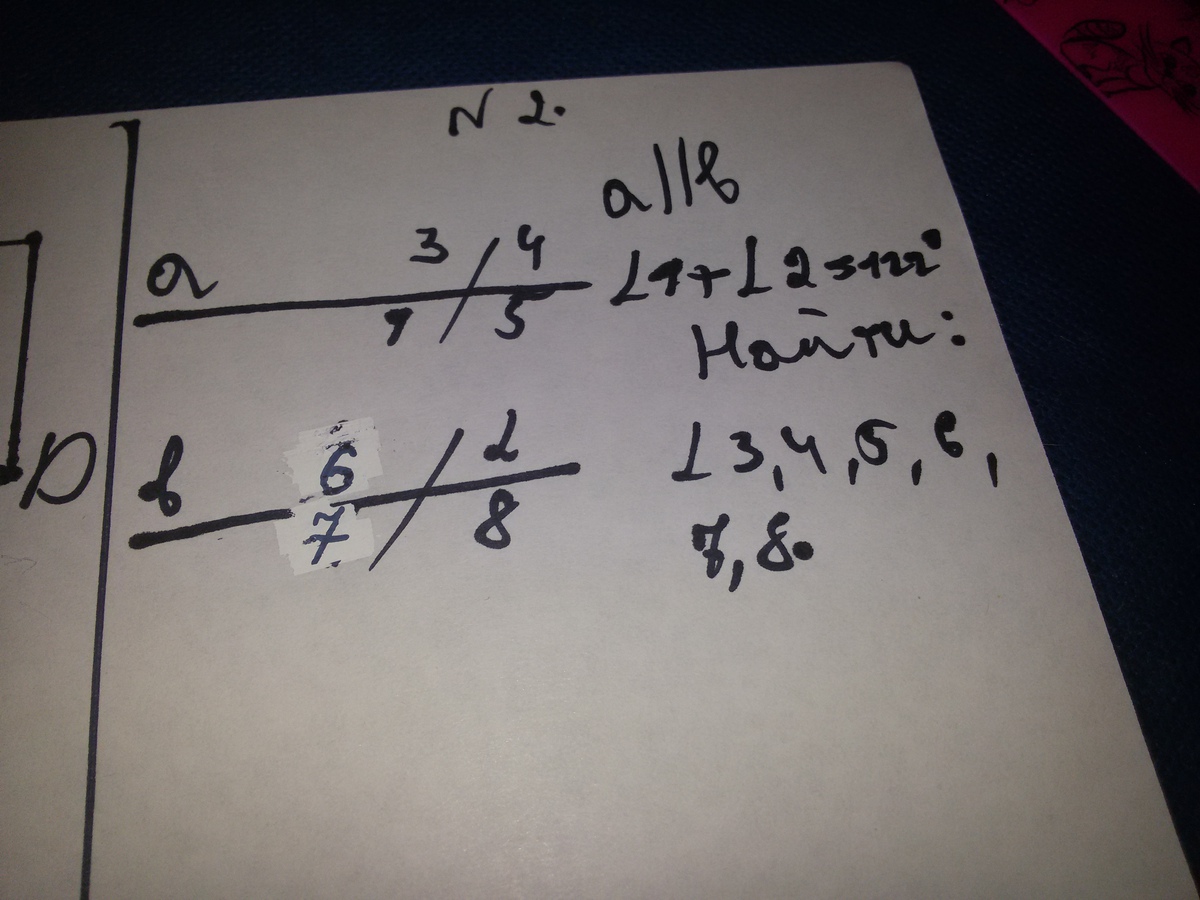 N 2.
a||b
a 3 4
1 5
∠1+∠2=122°
Найти:
b 6 2
7 8
∠3,4,5,6,
7,8.
D